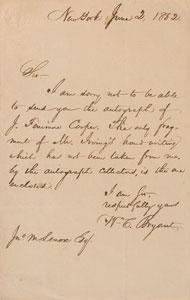 New York June 2, 1852
Sir
I am sorry not to be able
to send you the autograph of
J. Fenimore Cooper. The only frag-
ment of Mr. Irving's hand-writing
which has not been taken from me,
by the autograph collectors, is the one
enclosed.
I am Sir
respectfully yours
Wm C. Bryant
Jno Esq.